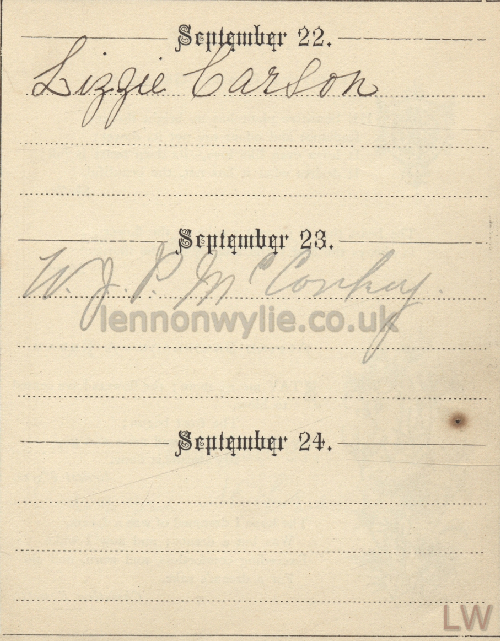 September 22.
Lizzie Carson
September 23.
W. J. P. McConkey.
lennonwylie.co.uk
September 24.
LW